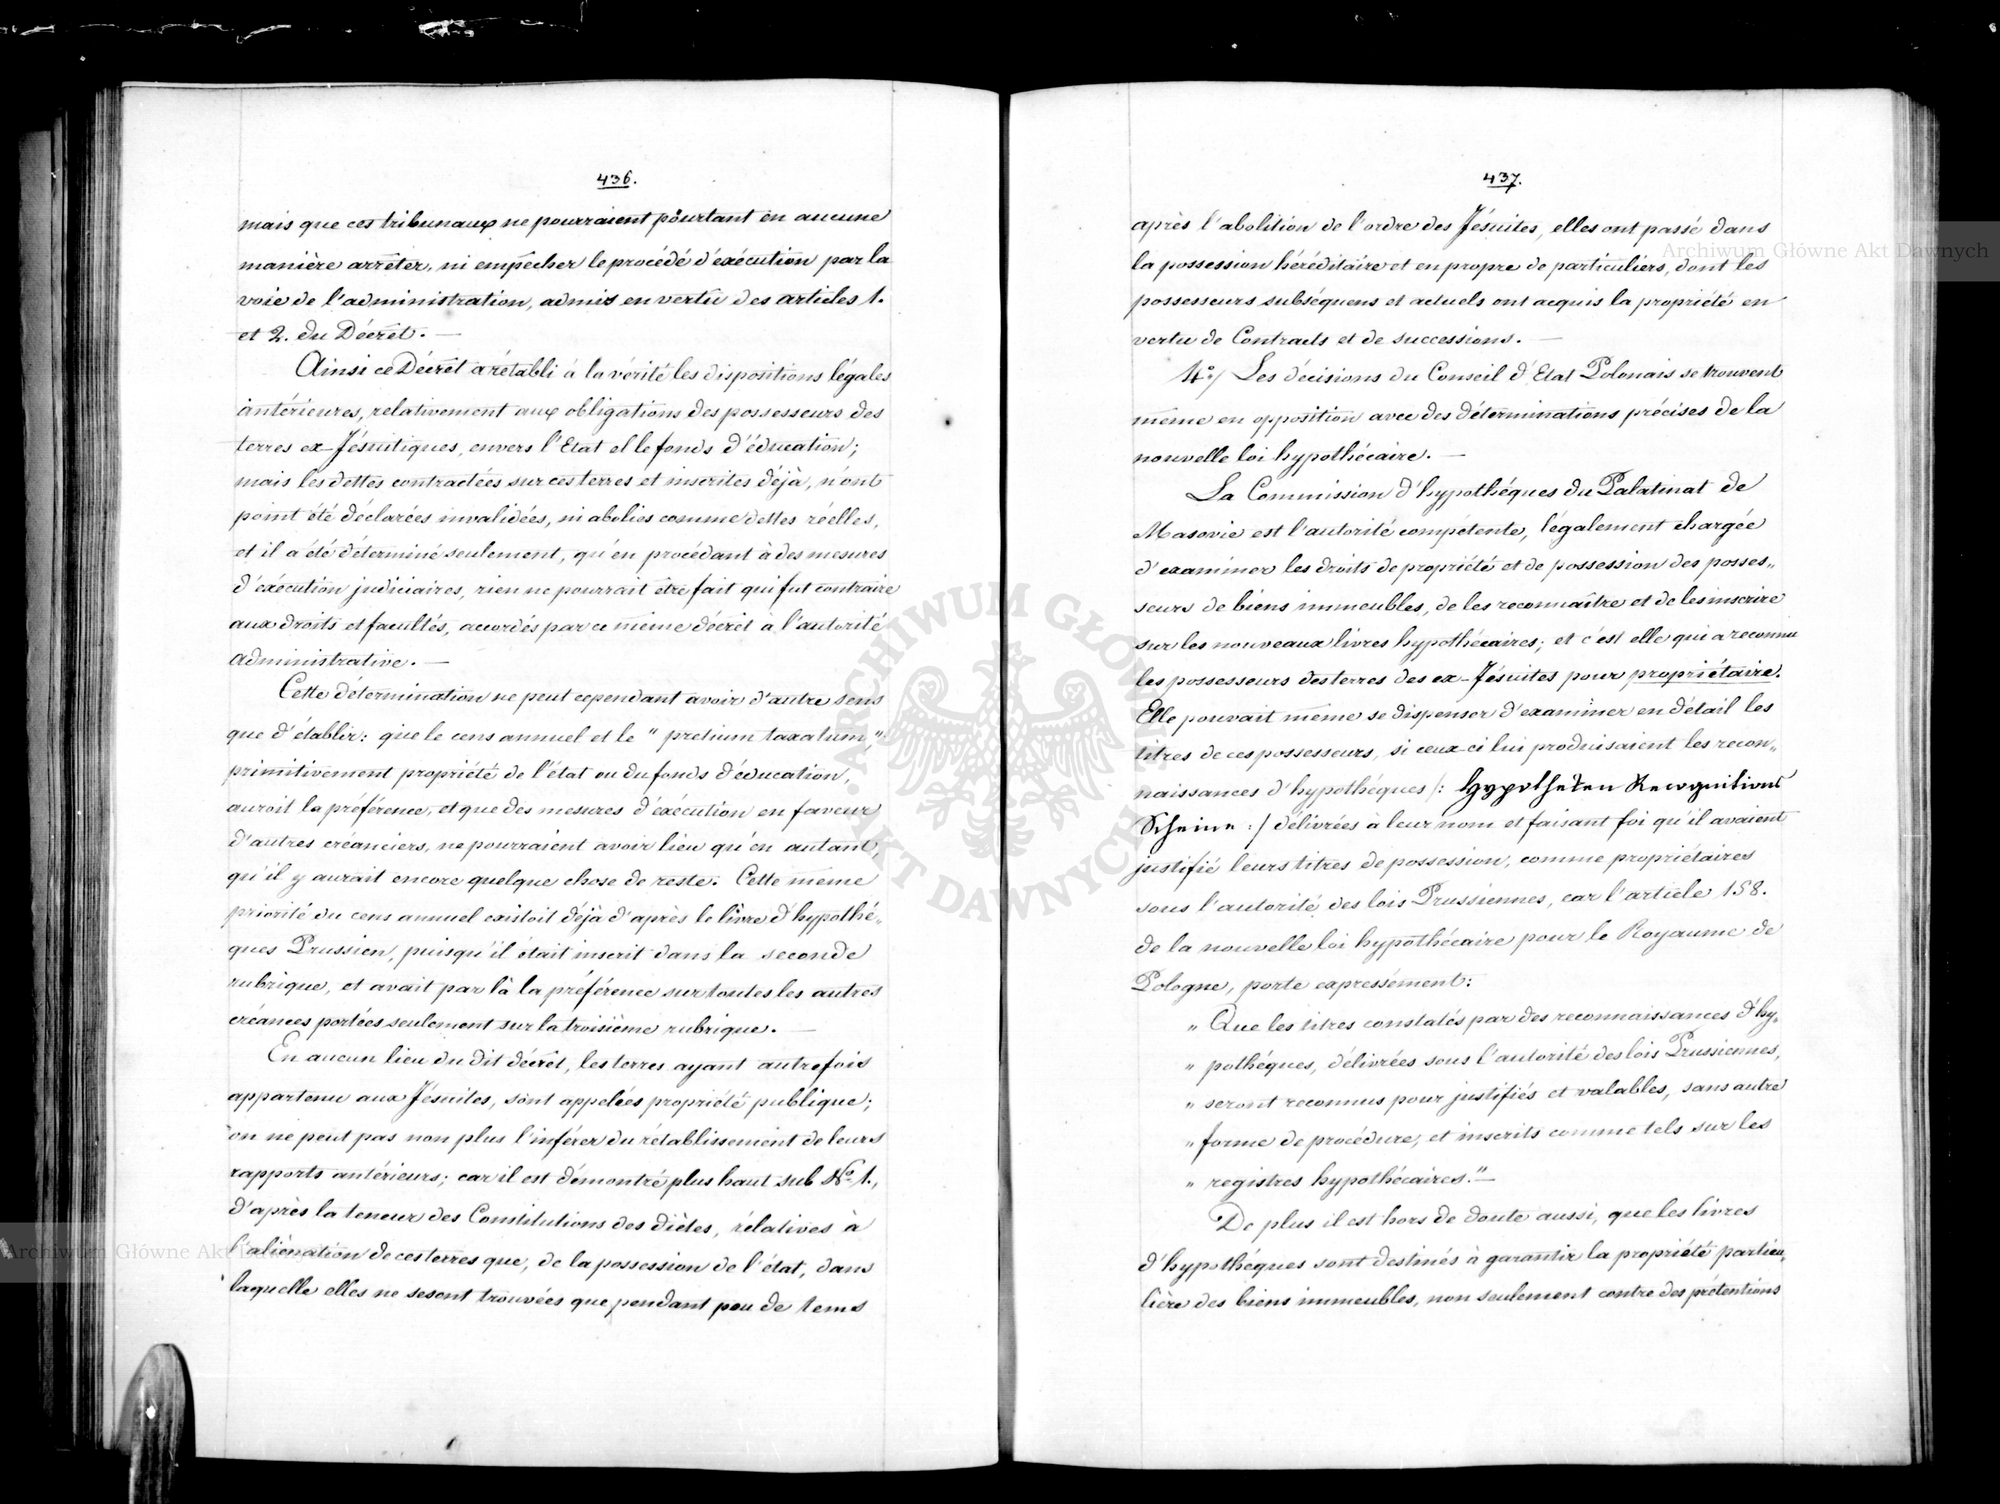 436.
mais que ces tribunaux ne pourraient pourtant en aucune
manière arrêter, ni empêcher le procédé d'exécution par la
voie de l'administration, admis en vertu des articles 1.
et 2. du Décret. —
Ainsi ce Décret a rétabli à la vérité les dispositions légales
antérieures, relativement aux obligations des possesseurs des
terres ex-Jésuitiques, envers l'Etat et le fonds d'éducation;
mais les dettes contractées sur ces terres et inscrites déjà, n'ont
point été déclarées invalidées, ni abolies comme dettes réelles,
et il a été déterminé seulement, qu'en procédant à des mesures
d'exécution judiciaires, rien ne pourrait être fait qui fut contraire
aux droits et facultés, accordés par ce même décret a l'autorité
administrative. —
Cette détermination ne peut cependant avoir d'autre sens
que d'établir: que le cens annuel et le " pretium taxatum,"
primitivement propriété de l'état ou du fonds d'éducation,
auroit la préférence, et que des mesures d'exécution en faveur
d'autres créanciers, ne pourraient avoir lieu qu'en autant,
qu'il y aurait encore quelque chose de reste. Cette même
priorité du cens annuel existoit déjà d'après le livre d'hypothé„
ques Prussien, puisqu'il était inscrit dans la seconde
rubrique, et avait par là la préférence sur toutes les autres
créances portées seulement sur la troisième rubrique. —
En aucun lieu du dit décret, les terres ayant autrefois
appartenu aux Jésuites, sont appelées propriété publique;
on ne peut pas non plus l'inférer du rétablissement de leurs
rapports antérieurs; car il est démontré plus haut sub No. 1.,
d'après la teneur des Constitutions des diètes, rélatives à
l'aliènation de ces terres que, de la possession de l'état, dans
laquelle elles ne se sont trouvées que pendant peu de tems
437.
après l'abolition de l'ordre des Jésuites, elles ont passé dans
la possession héréditaire et en propre de particuliers, dont les
possesseurs subséquens et actuels ont acquis la propriété en
vertu de Contracts et de successions. —
4°/ Les décisions du Conseil d'Etat Polonais se trouvent
même en opposition avec des déterminations précises de la
nouvelle loi hypothécaire. —
La Commission d'hypothéques du Palatinat de
Masovie est l'autorité compétente, légalement chargée
d'examiner les droits de propriété et de possession des posses„
seurs de biens immeubles, de les reconnaître et de les inscrire
sur les nouveaux livres hypothécaires; et c'est elle qui a reconnu
les possesseurs des terres des ex-Jésuites pour propriétaire.
Elle pouvait même se dispenser d'examiner en détail les
titres de ces possesseurs, si ceux-ci lui produisaient les recon„
naissances d'hypothéques /: Hypotheken Recognitions
Scheine :/ délivrées à leur nom et faisant foi qu'il avaient
justifié leurs titres de possession, comme propriétaires
sous l'autorité des lois Prussiennes, car l'article 158.
de la nouvelle loi hypothécaire pour le Royaume de
Pologne, porte expressément:
" Que les titres constatés par des reconnaissances d'hy„
" pothéques, délivrées sous l'autorité des lois Prussiennes,
" seront reconnus pour justifiés et valables, sans autre
" forme de procédure, et inscrits comme tels sur les
" registres hypothécaires." —
De plus il est hors de doute aussi, que les livres
d'hypothéques sont destinés à garantir la propriété particu„
lière des biens immeubles, non seulement contre des prétentions
Archiwum Główne Akt Dawnych
Archiwum Główne Akt Dawnych
ARCHIWUM GŁÓWNE AKT DAWNYCH